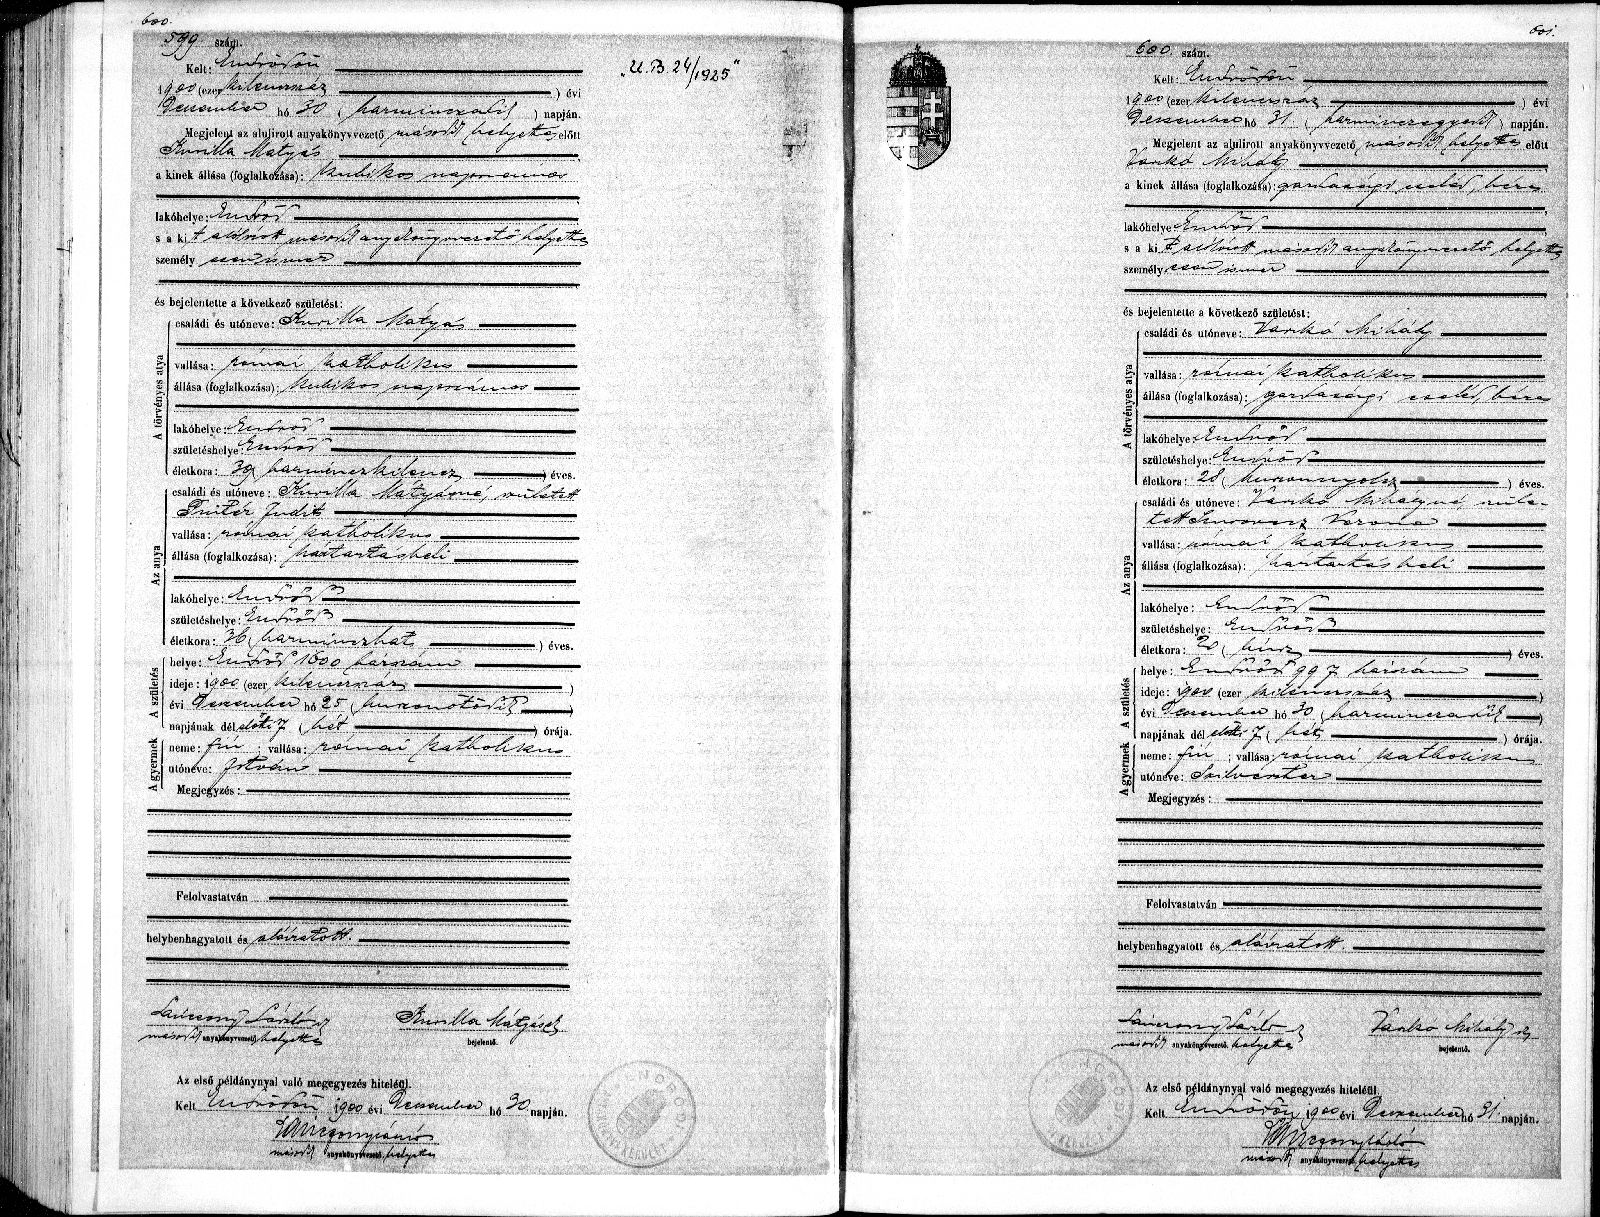 600.
599 szám.
Kelt: Endrődön
1900 (ezer kilencszáz ) évi
December hó 30 ( harminczadik ) napján.
Megjelent az alulirott anyakönyvvezető második helyettes előtt
Kurilla Mátyás
a kinek állása (foglalkozása): kubikos napszámos
lakóhelye: Endrőd
s a kit alólirott második anyakönyvvezető helyettes
személyesen ismer
és bejelentette a következő születést:
A törvényes atya
családi és utóneve: Kurilla Mátyás
vallása: római katholikus
állása (foglalkozása): kubikos napszámos
lakóhelye: Endrőd
születéshelye: Endrőd
életkora: 39 ( harminczkilencz ) éves.
Az anya
családi és utóneve: Kurilla Mátyásné, született
Judit
vallása: római katholikus
állása (foglalkozása): háztartásbeli
lakóhelye: Endrőd
születéshelye: Endrőd
életkora: 36 ( harminczhat ) éves.
A születés
helye: Endrőd 1600 házszám
ideje: 1900 (ezer kilenczszáz )
évi December hó 25 ( huszonötödik )
napjának dél előtti 7 ( hét ) órája.
A gyermek
neme: fiú ; vallása: római katholikus
utóneve: István
Megjegyzés:
Felolvastatván
helybenhagyatott és aláiratott.
László Kurilla Mátyás
második anyakönyvvezető helyettes bejelentő.
Az első példánynyal való megegyezés hiteléül.
Kelt Endrődön 1900 évi December hó 30 napján.
második anyakönyvvezető helyettes
„U.B. 24/1925"
601.
600. szám.
Kelt: Endrődön
1900 (ezer kilenczszáz ) évi
December hó 31 ( harminczegyedik ) napján.
Megjelent az alulirott anyakönyvvezető második helyettes előtt
Vankó Mihály
a kinek állása (foglalkozása): gazdasági cseléd, béres
lakóhelye: Endrőd
s a kit alólirott második anyakönyvvezető helyettes
személyesen ismer
és bejelentette a következő születést:
A törvényes atya
családi és utóneve: Vankó Mihály
vallása: római katholikus
állása (foglalkozása): gazdasági cseléd, béres
lakóhelye: Endrőd
születéshelye: Endrőd
életkora: 28 ( huszonnyolcz ) éves.
Az anya
családi és utóneve: Vankó Mihályné, szüle-
tett Verona
vallása: római katholikus
állása (foglalkozása): háztartásbeli
lakóhelye: Endrőd
születéshelye: Endrőd
életkora: 20 ( húsz ) éves.
A születés
helye: Endrőd 997 házszám
ideje: 1900 (ezer kilenczszáz )
évi December hó 30 ( harminczadik )
napjának dél előtti 7 ( hét ) órája.
A gyermek
neme: fiú ; vallása: római katholikus
utóneve: Szilveszter
Megjegyzés:
Felolvastatván
helybenhagyatott és aláiratott.
László Vankó Mihály
második anyakönyvvezető helyettes bejelentő.
Az első példánynyal való megegyezés hiteléül.
Kelt Endrődön 1900 évi December hó 31 napján.
második anyakönyvvezető helyettes